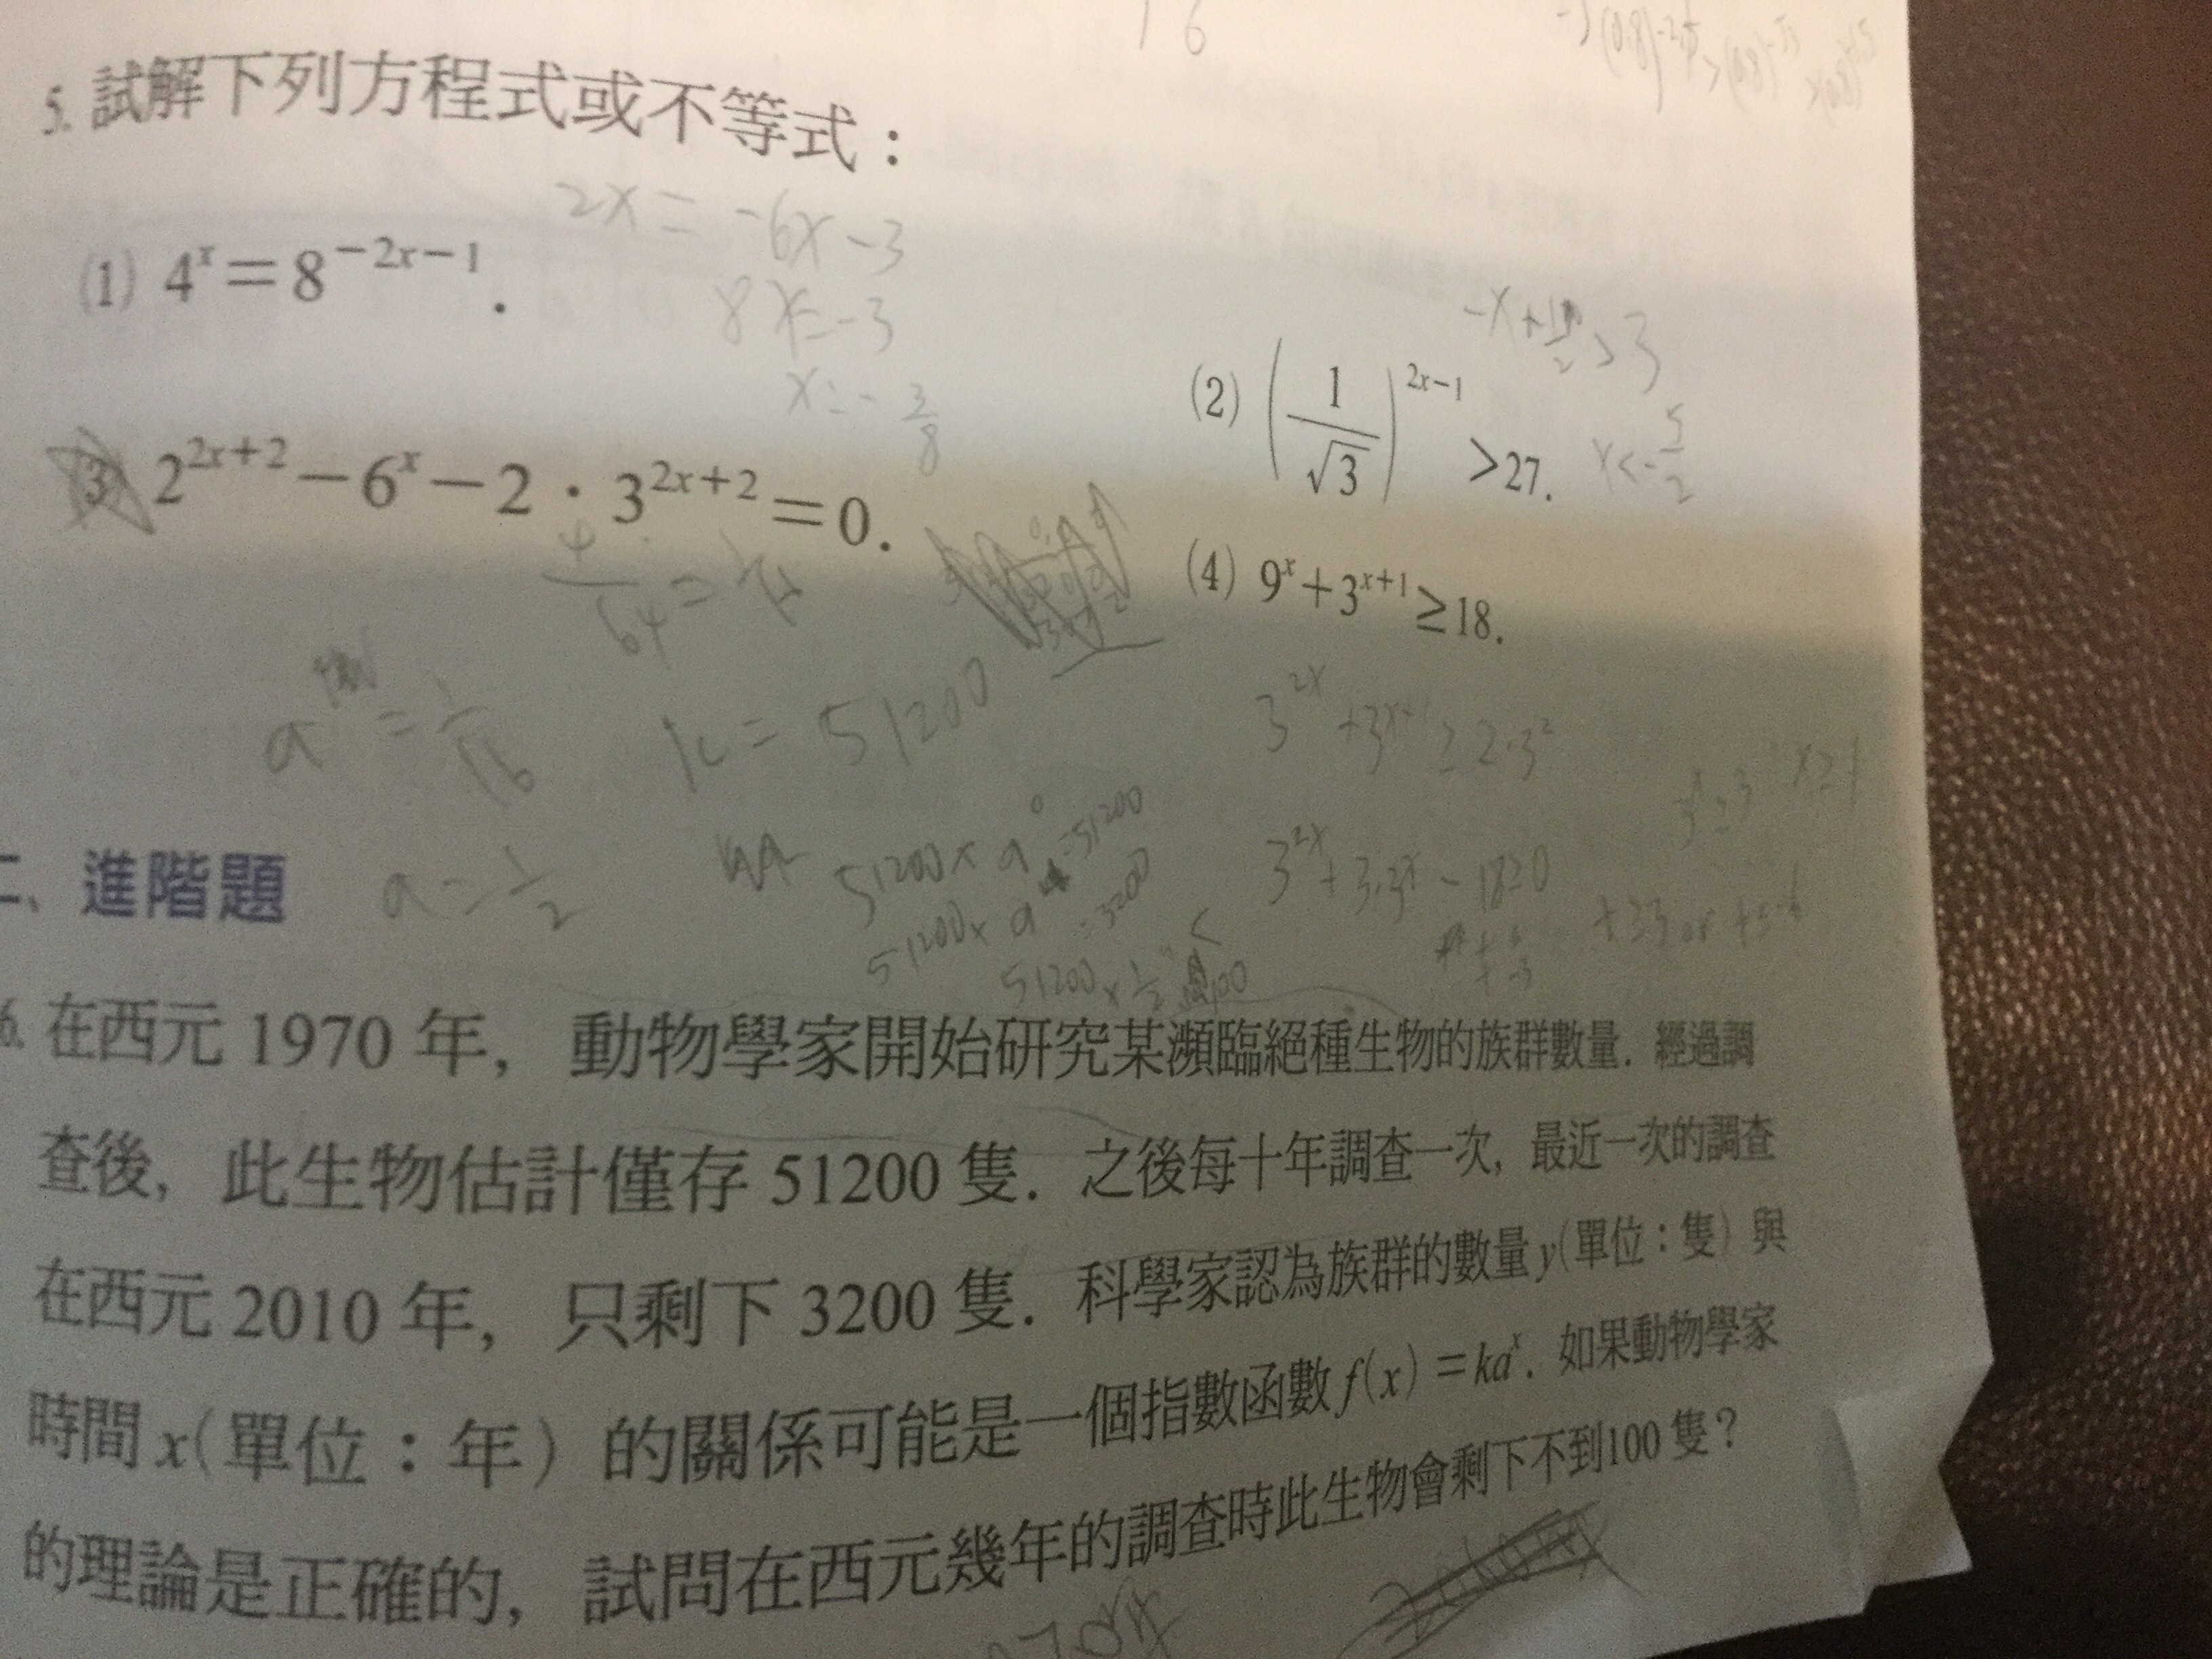 16
5. 試解下列方程式或不等式：
2x = -6x-3
(1) 4^x＝8^{－2x－1}.
8x=-3
x=-3/8
-x+1/2>3
(2) (1/√3)^{2x－1}＞27.
x<-5/2
(3) 2^{2x＋2}－6^x－2．3^{2x＋2}＝0.
4/64=1/16
(4) 9^x＋3^{x＋1}≥18.
a = 1/16
k = 51200
3^{2x}+3^{x+1}≥2·3^2
3^x≥3 x≥1
二、進階題
a=1/2
51200×a^0=51200
3^{2x}+3·3^x-18≥0
51200×a^4=3200
t≥3 or t≤-6
6. 在西元 1970 年，動物學家開始研究某瀕臨絕種生物的族群數量．經過調
查後，此生物估計僅存 51200 隻．之後每十年調查一次，最近一次的調查
在西元 2010 年，只剩下 3200 隻．科學家認為族群的數量 y(單位：隻) 與
時間 x(單位：年) 的關係可能是一個指數函數 f(x)＝ka^x．如果動物學家
的理論是正確的，試問在西元幾年的調查時此生物會剩下不到100 隻？